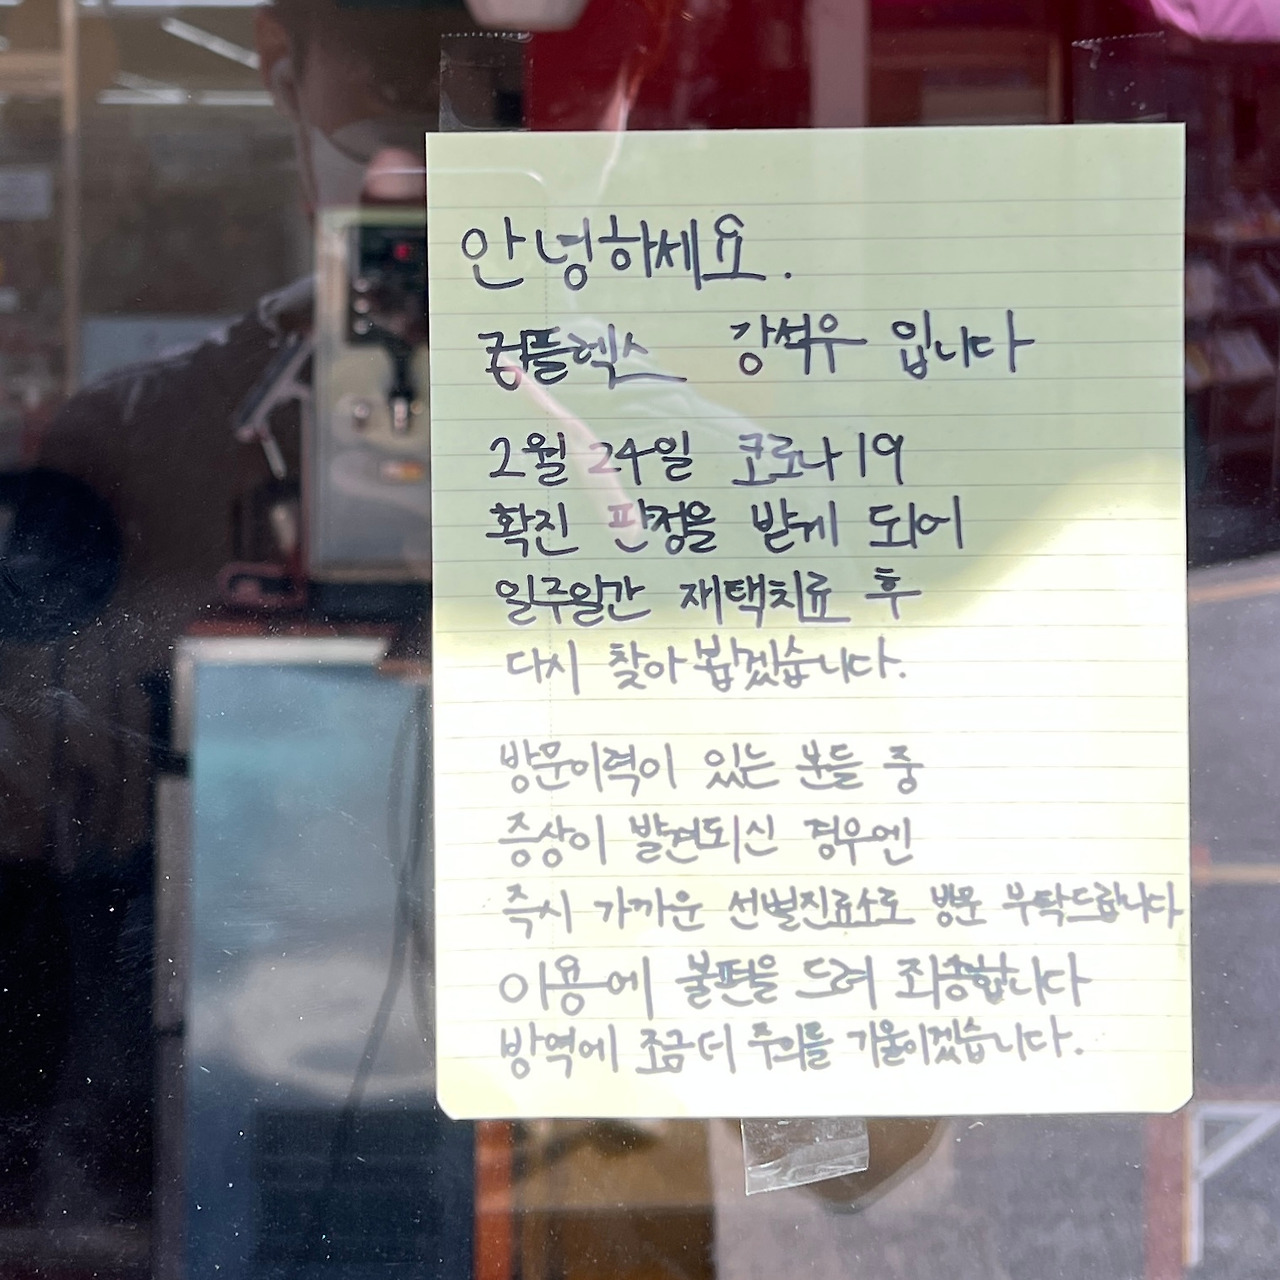 안녕하세요.
컴플렉스 강석우 입니다
2월 24일 코로나19
확진 판정을 받게 되어
일주일간 재택치료 후
다시 찾아 뵙겠습니다.
방문이력이 있는 분들 중
증상이 발견되신 경우엔
즉시 가까운 선별진료소로 방문 부탁드립니다
이용에 불편을 드려 죄송합니다
방역에 조금 더 주의를 기울이겠습니다.